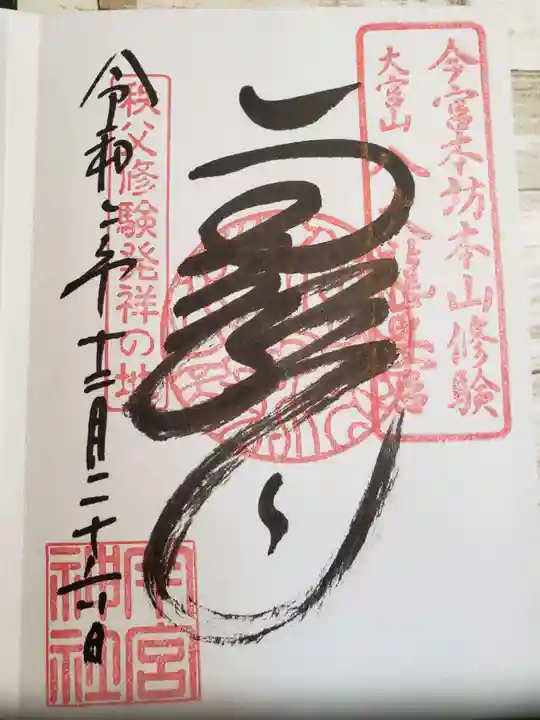 今宮本坊本山修験
大宮山 八
龍
秩父修験発祥の地
令和二年十二月二十六日
今宮
神社